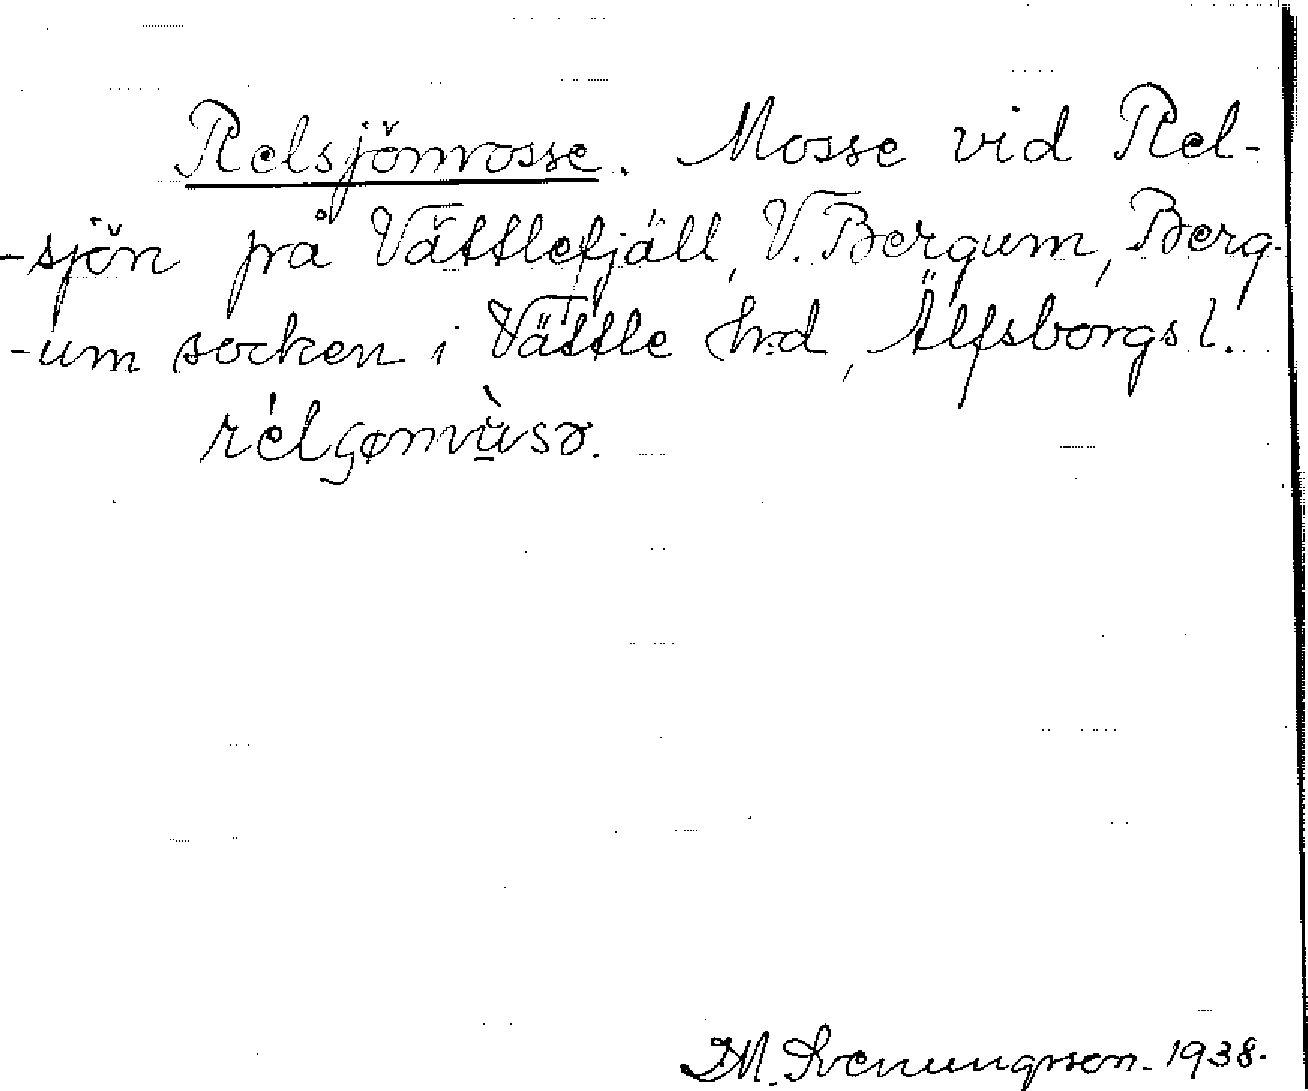 Relsjömosse. Mosse vid Rel-
-sjön på Vättlefjäll, V. Bergum, Berg-
-um socken i Vättle hrd, Älfsborgs l.
M. Svenungsson. 1938.